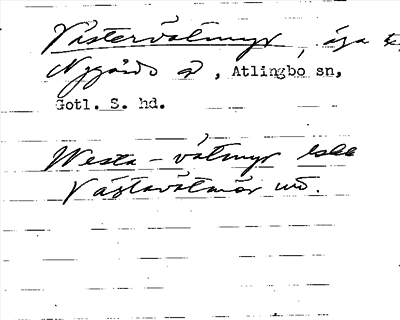 Västervätmyr, äga t
Nygårds , Atlingbo sn,
Gotl. S. hd.
Westa-vätmyr
Västavätmör